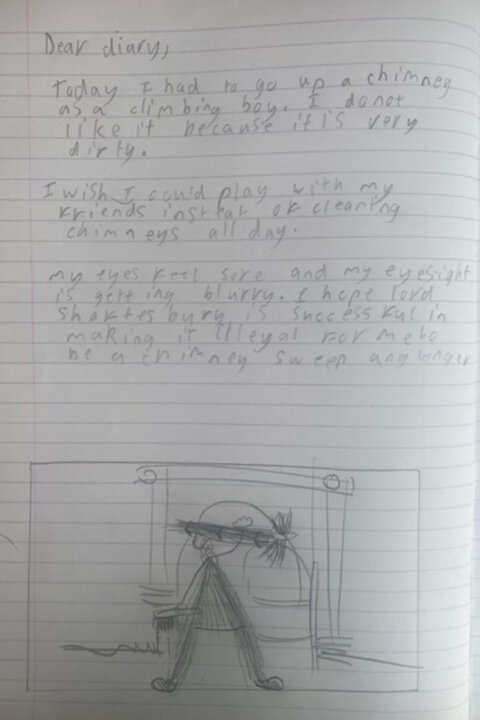 Dear diary,
Today I had to go up a chimney
as a climbing boy. I donot
like it because it is very
dirty.
I wish I could play with my
friends insteat of cleaning
chimneys all day.
my eyes feel sore and my eyesight
is getting blurry. I hope lord
shaftesbury is successful in
making it illegal for me to
be a chimney sweep anylonger